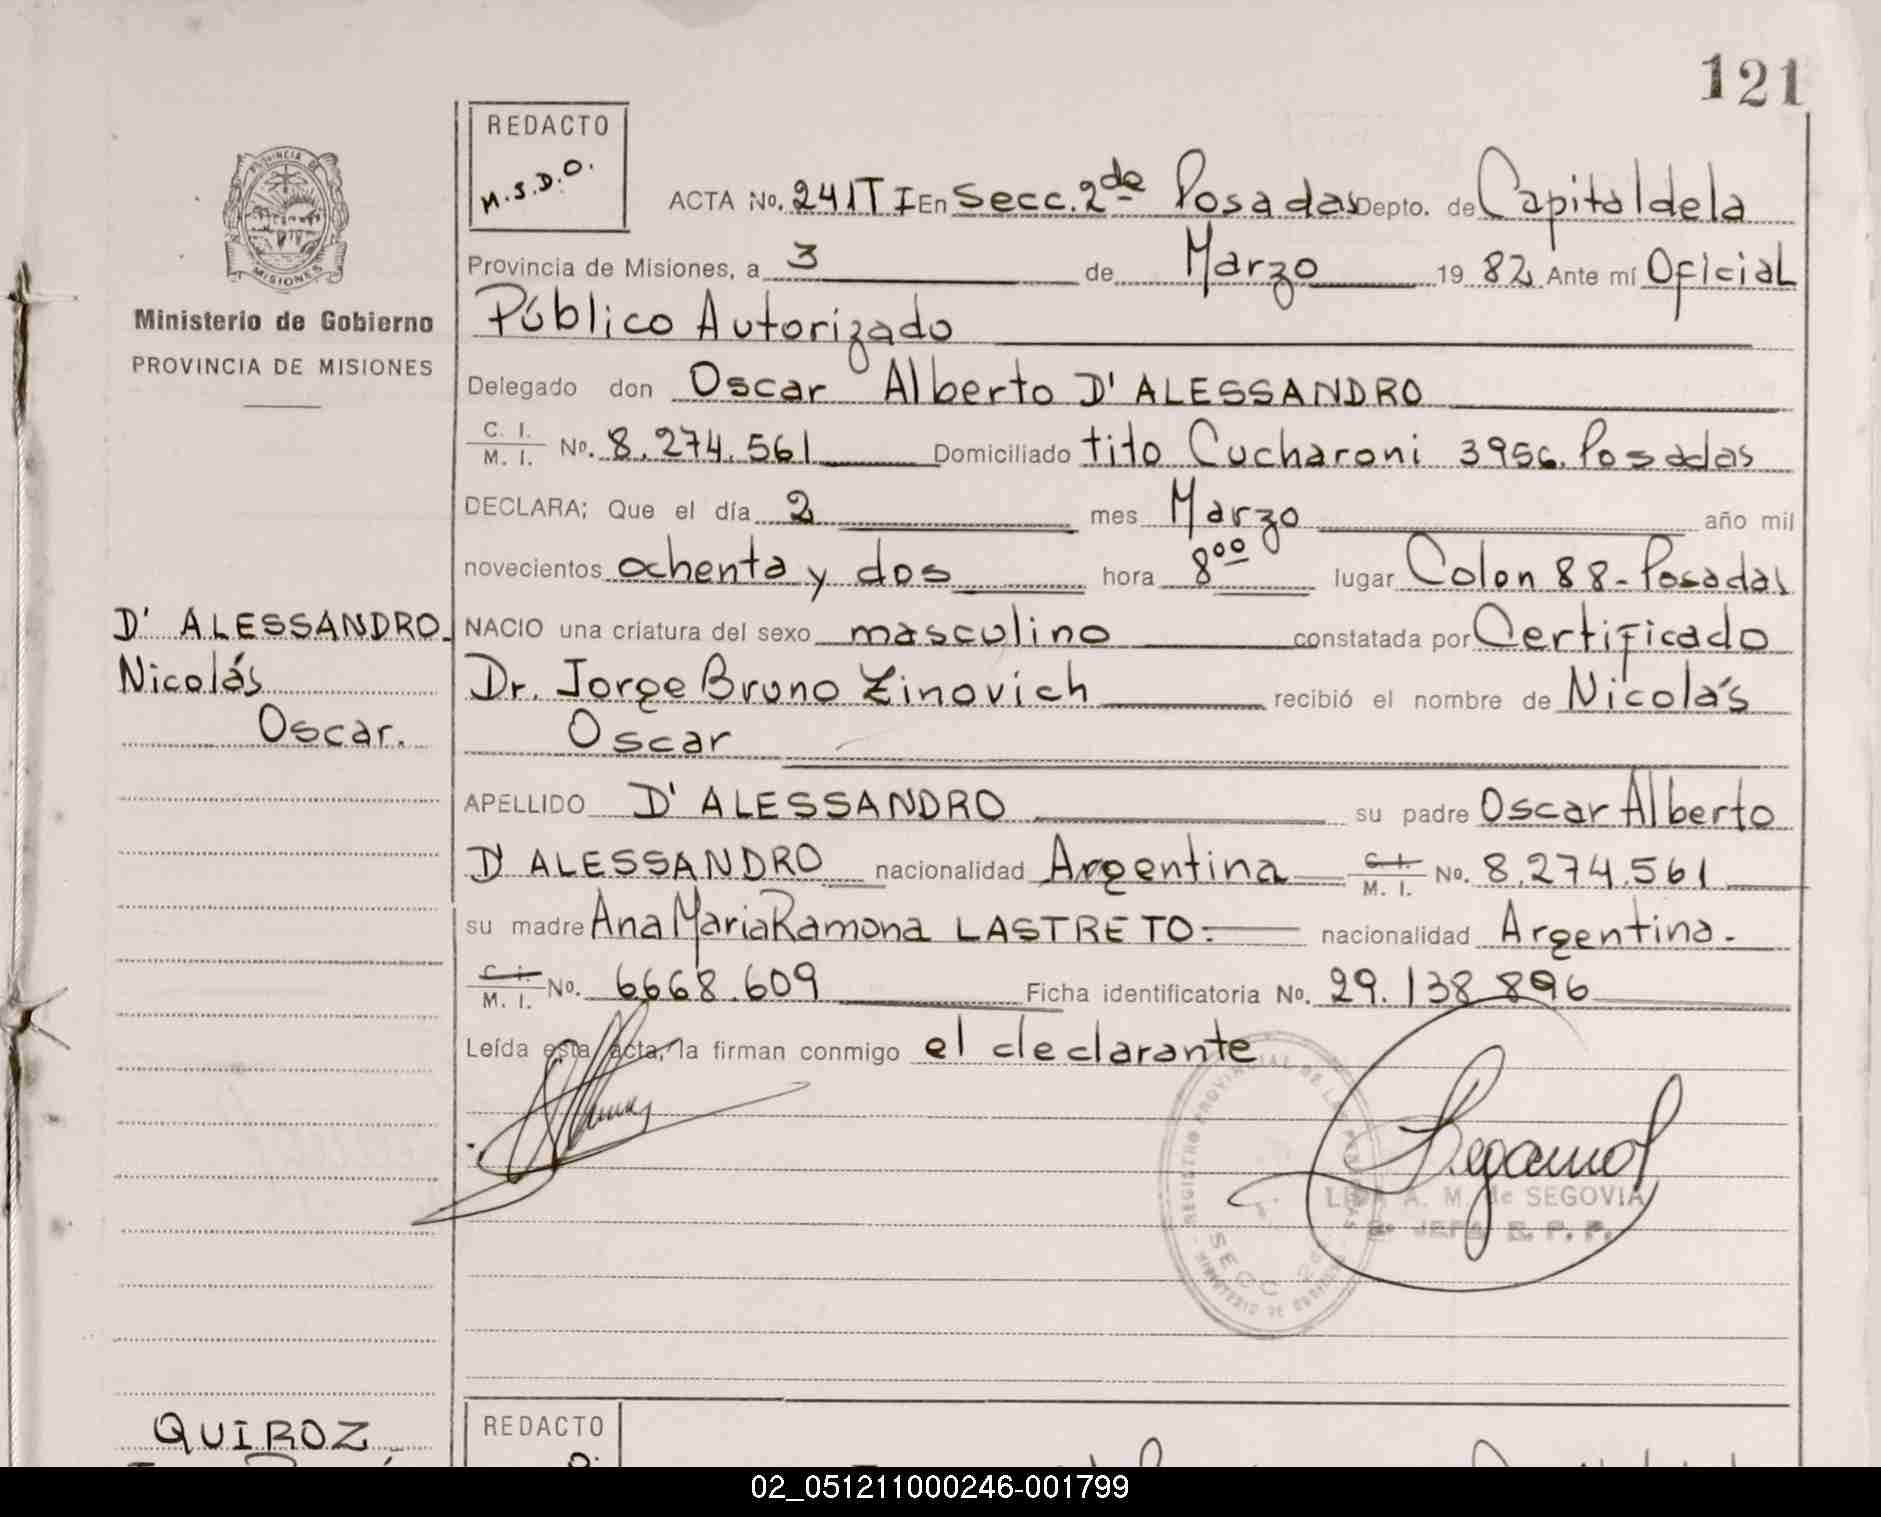 121
REDACTO
M.S.D.O.
ACTA No. 241 T I En Secc. 2de Posadas Depto. de Capital de la
Provincia de Misiones, a 3 de Marzo 1982 Ante mí Oficial
Público Autorizado
Delegado don Oscar Alberto D' ALESSANDRO
C. I. M. I. No. 8.274.561 Domiciliado tito Cucharoni 3956. Posadas
DECLARA; Que el día 2 mes Marzo año mil
novecientos ochenta y dos hora 8oo lugar Colon 88 - Posadas
NACIO una criatura del sexo masculino constatada por Certificado
Dr. Jorge Bruno Zinovich recibió el nombre de Nicolás
Oscar
APELLIDO D' ALESSANDRO su padre Oscar Alberto
D' ALESSANDRO nacionalidad Argentina C. I. M. I. No. 8.274.561
su madre Ana Maria Ramona LASTRETO.- nacionalidad Argentina.-
C. I. M. I. No. 6668.609 Ficha identificatoria No. 29.138.896
Leída esta acta, la firman conmigo el declarante
REGISTRO PROVINCIAL DE LAS PERSONAS
MINISTERIO DE GOBIERNO
SECC 2da
A. M. de SEGOVIA
JEFA R. P. P.
PROVINCIA DE
MISIONES
Ministerio de Gobierno
PROVINCIA DE MISIONES
D' ALESSANDRO.
Nicolás
Oscar.
QUIROZ
REDACTO
02_051211000246-001799